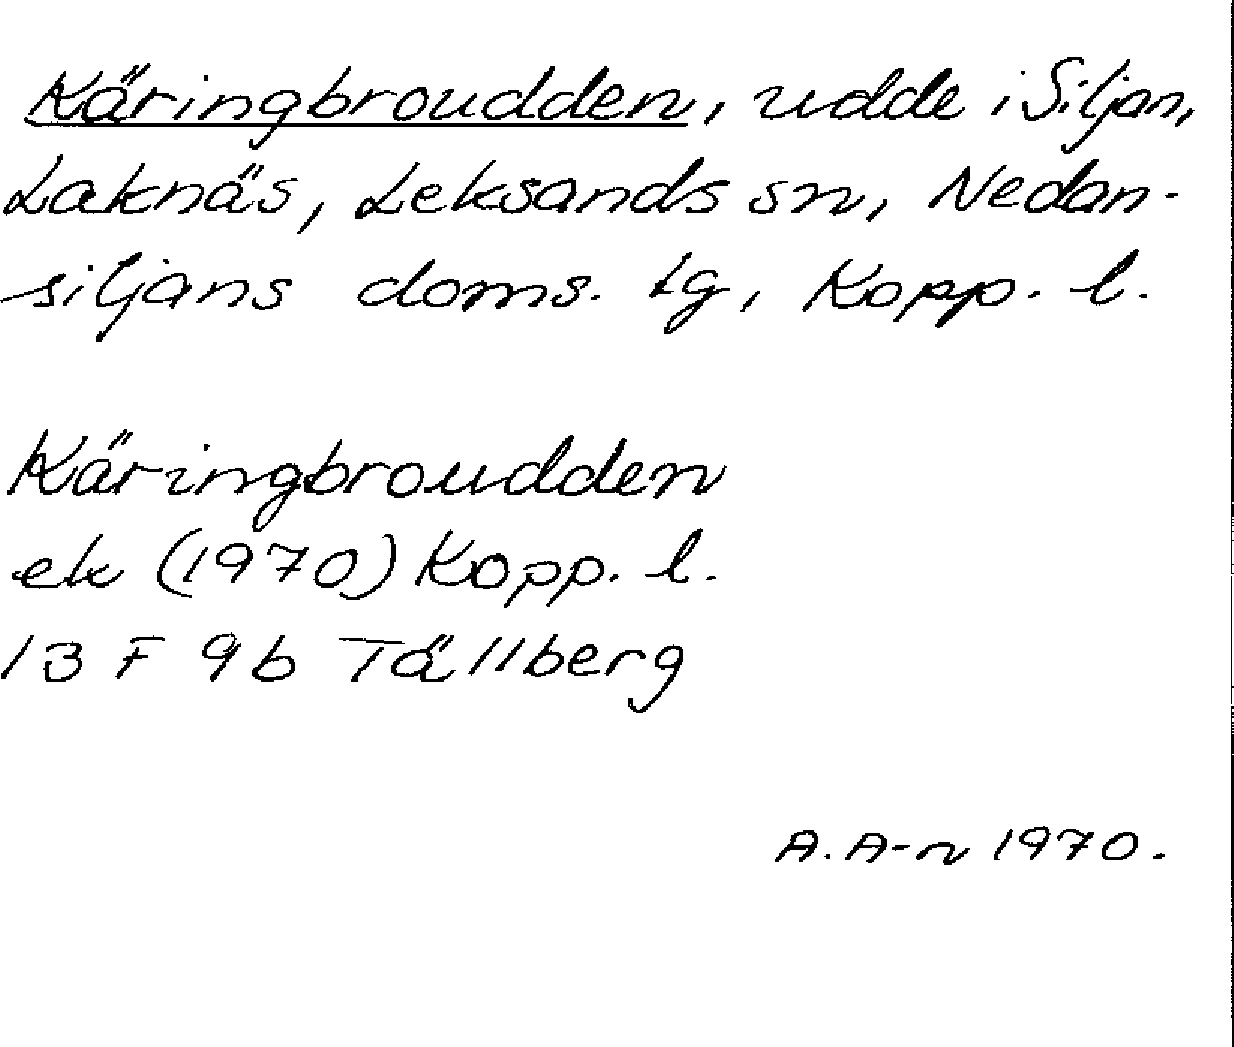 Käringbroudden, udde i Siljan,
Laknäs, Leksands sn, Nedan-
siljans doms. Lg, Kopp. l.
Käringbroudden
ek (1970) Kopp. l.
13 F 9b Tällberg
A. A-n 1970.